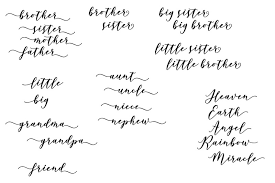 brother
sister
mother
father
brother
sister
big sister
big brother
little sister
little brother
little
big
aunt
uncle
niece
nephew
grandma
grandpa
friend
Heaven
Earth
Angel
Rainbow
Miracle